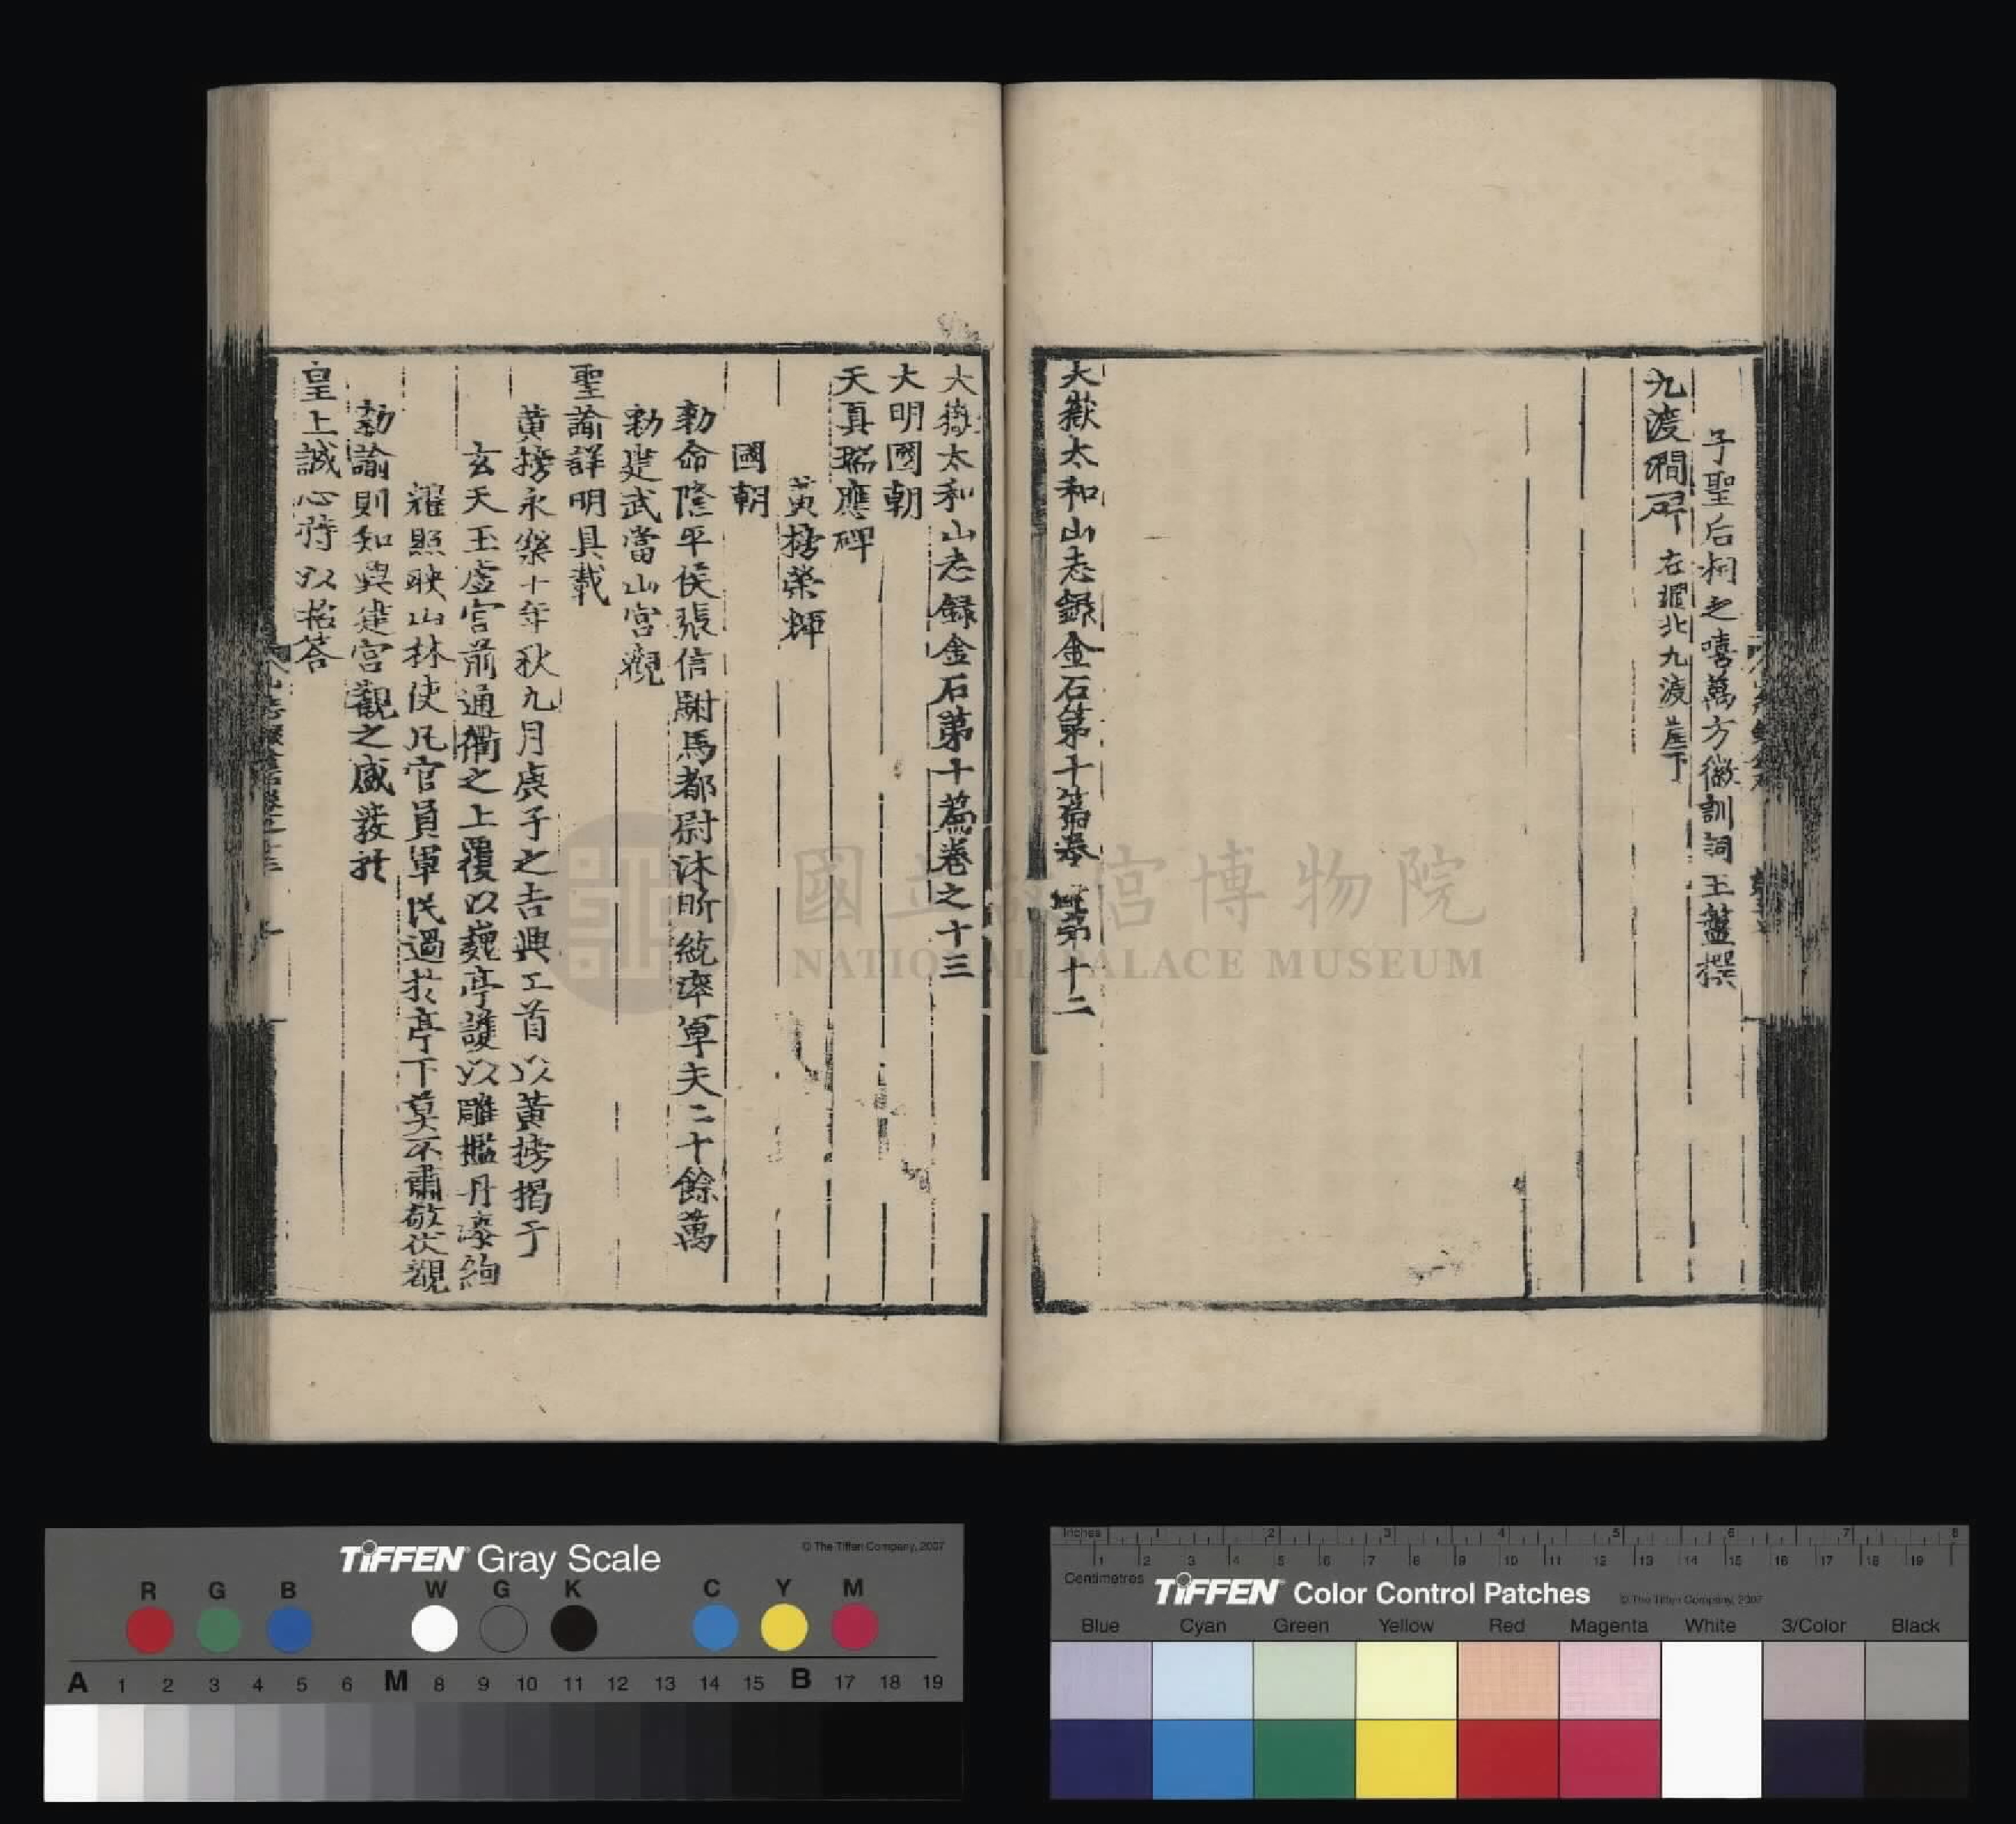 子聖后祠之嘻萬方徽訓詞王盤撰
九渡澗
在澗北九渡崖下
大嶽太和山志錄金石第十篇卷
第十二
大嶽太和山志録金石第十篇卷之十三
大明國朝
天真瑞應碑
黃榜榮輝
國朝
勑命隆平侯張信駙馬都尉沐昕統率軍夫二十餘萬
勑建武當山宮觀
聖諭詳明具載
黃榜永樂十年秋九月庚子之吉興工首以黃榜揭于
玄天玉虛宮前通衢之上覆以巍亭護以雕檻丹漆絢
耀照映山林使凡官員軍民過於亭下莫不肅敬伏覩
勑諭則知興建宮觀之盛發於
皇上誠心特以招答
國立故宮博物院
NATIONAL PALACE MUSEUM
TIFFEN Gray Scale
© The Tiffen Company, 2007
R G B W G K C Y M
A 1 2 3 4 5 6 M 8 9 10 11 12 13 14 15 B 17 18 19
Inches 1 2 3 4 5 6 7 8
1 2 3 4 5 6 7 8 9 10 11 12 13 14 15 16 17 18 19
Centimetres
TIFFEN Color Control Patches
© The Tiffen Company, 2007
Blue Cyan Green Yellow Red Magenta White 3/Color Black